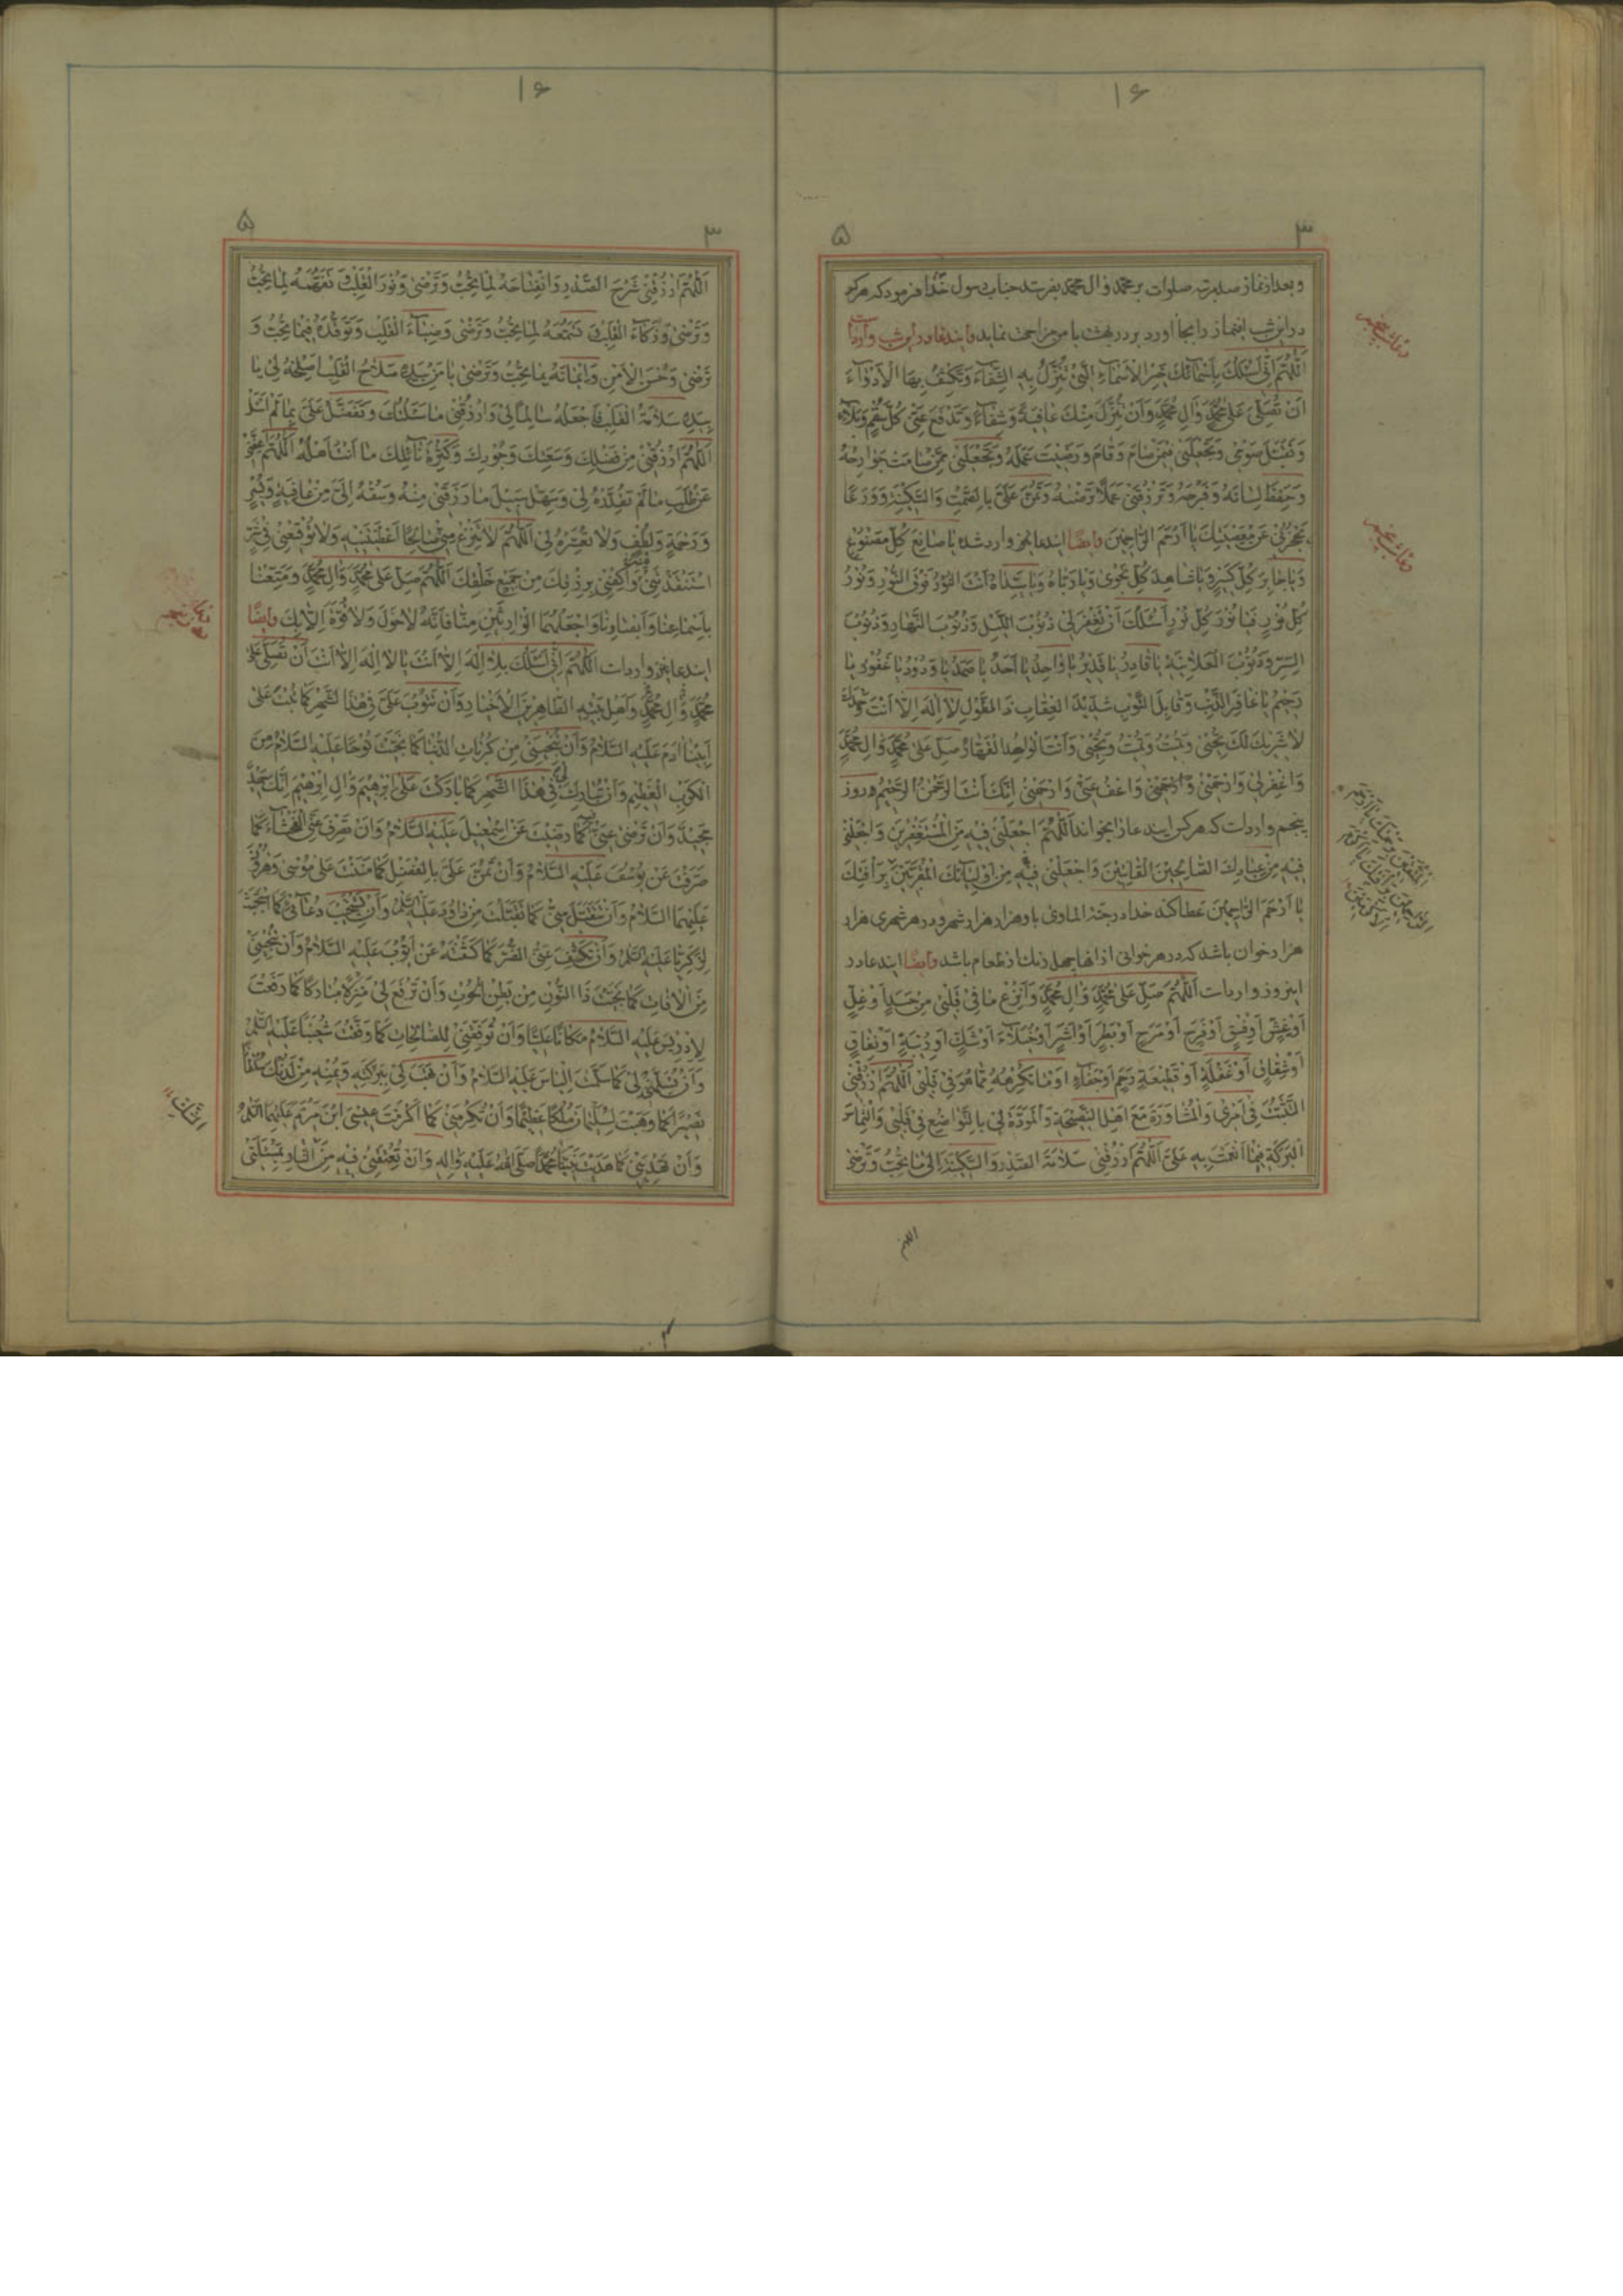 ١٦
٣
٥
و بعد از نماز صد مرتبه صلوات بر محمد و آل محمد بفرستد جناب رسول خدا فرمود که هر که
در این شب این نماز را بجا آورد بر در بهشت با من مزاحمت نماید و ایندعاء در این شب وارد است
اَللّٰهُمَّ اِنّٖی اَسْئَلُكَ بِاَسْمٰائِكَ خَیْرِ الْاَسْمٰاءِ الَّتٖی تُنَزِّلُ بِهِ الشِّفٰاءَ وَتَكْشِفُ بِهَا الْاَدْوٰاءَ
اَنْ تُصَلِّیَ عَلٰی مُحَمَّدٍ وَاٰلِ مُحَمَّدٍ وَاَنْ تُنَزِّلَ مِنْكَ عٰافِیَةً وَشِفٰاءً وَتَدْفَعَ عَنّٖی كُلَّ سُقْمٍ وَبَلٰاءٍ
وَتَقَبَّلَ صَوْمٖی وَتَجْعَلَنٖی مِمَّنْ صٰامَ وَقٰامَ وَرَضٖیتَ عَمَلَهُ وَتَجْعَلَنٖی مِمَّنْ صٰامَتْ جَوٰارِحُهُ
وَحَفِظَ لِسٰانَهُ وَفَرْجَهُ وَتَرْزُقَنٖی عَمَلاً تَرْضٰهُ وَتَمُنَّ عَلَیَّ بِالصَّمْتِ وَالسَّكٖینَةِ وَوَرَعًا
یَحْجُزُنٖی عَنْ مَعْصِیَتِكَ یٰا اَرْحَمَ الرّٰاحِمٖینَ وایضًا ایندعا نیز وارد شده یٰا صٰانِعَ كُلِّ مَصْنُوعٍ
وَیٰا جٰابِرَ كُلِّ كَسٖیرٍ وَیٰا شٰاهِدَ كُلِّ نَجْوٰی وَیٰا رَبّٰاهُ وَیٰا سَیِّدٰاهُ اَنْتَ النُّوْرُ فَوْقَ النُّوْرِ وَنُوْرُ
كُلِّ نُوْرٍ فَیٰا نُوْرَ كُلِّ نُوْرٍ اَسْئَلُكَ اَنْ تَغْفِرَ لٖی ذُنُوْبَ اللَّیْلِ وَذُنُوْبَ النَّهٰارِ وَذُنُوْبَ
السِّرِّ وَذُنُوْبَ الْعَلٰانِیَةِ یٰا قٰادِرُ یٰا قَدٖیرُ یٰا وٰاحِدُ یٰا اَحَدُ یٰا صَمَدُ یٰا وَدُوْدُ یٰا غَفُوْرُ یٰا
رَحٖیمُ یٰا غٰافِرَ الذَّنْبِ وَقٰابِلَ التَّوْبِ شَدٖیدَ الْعِقٰابِ ذَا الطَّوْلِ لٰا اِلٰهَ اِلّٰا اَنْتَ وَحْدَكَ
لٰا شَرٖیكَ لَكَ تُحْیٖی وَتُمٖیتُ وَتُمٖیتُ وَتُحْیٖی وَاَنْتَ الْوٰاحِدُ الْقَهّٰارُ صَلِّ عَلٰی مُحَمَّدٍ وَاٰلِ مُحَمَّدٍ
وَاغْفِرْ لٖی وَارْحَمْنٖی وَاعْفُ عَنّٖی وَارْحَمْنٖی اِنَّكَ اَنْتَ الرَّحْمٰنُ الرَّحٖیمُ و روز
پنجم وارد است که هر کس ایندعا را بخواند اَللّٰهُمَّ اجْعَلْنٖی فٖیهِ مِنَ الْمُسْتَغْفِرٖینَ وَاجْعَلْنٖی
فٖیهِ مِنْ عِبٰادِكَ الصّٰالِحٖینَ الْقٰانِتٖینَ وَاجْعَلْنٖی فٖیهِ مِنْ اَوْلِیٰائِكَ الْمُقَرَّبٖینَ بِرَأْفَتِكَ
یٰا اَرْحَمَ الرّٰاحِمٖینَ عطا کند خدا در جنة الماوی باو هزار هزار شهر و در هر شهری هزار
هزار خوان باشد که در هر خوانی از انها چهل رنك از طعام باشد وایضًا ایندعا در
اینروز وارد است اَللّٰهُمَّ صَلِّ عَلٰی مُحَمَّدٍ وَاٰلِ مُحَمَّدٍ وَانْزِعْ مٰا فٖی قَلْبٖی مِنْ حَسَدٍ اَوْ غِلٍّ
اَوْ غِشٍّ اَوْ فِسْقٍ اَوْ فَرَحٍ اَوْ مَرَحٍ اَوْ بَطَرٍ اَوْ اَشَرٍ اَوْ خُیَلٰاءَ اَوْ شَكٍّ اَوْ رٖیبَةٍ اَوْ نِفٰاقٍ
اَوْ شِقٰاقٍ اَوْ غَفْلَةٍ اَوْ قَطٖیعَةِ رَحِمٍ اَوْ جَفٰاءٍ اَوْ مٰا تَكْرَهُهُ مِمّٰا هُوَ فٖی قَلْبٖی اَللّٰهُمَّ ارْزُقْنٖی
التَّثَبُّتَ فٖی اَمْرٖی وَالْمُشٰاوَرَةَ مَعَ اَهْلِ النَّصٖیحَةِ وَالْمَوَدَّةِ لٖی بِالتَّوٰاضُعِ فٖی قَلْبٖی وَالْتِمٰاسَ
الْبَرَكَةِ فٖیمٰا اَنْعَمْتَ بِهِ عَلَیَّ اَللّٰهُمَّ ارْزُقْنٖی سَلٰامَةَ الصَّدْرِ وَالسَّكٖینَةَ اِلٰی مٰا تُحِبُّ وَتَرْضٰی
اللهم
١٦
٣
٥
اَللّٰهُمَّ ارْزُقْنٖی شَرْحَ الصَّدْرِ وَانْفِتٰاحَهُ لِمٰا تُحِبُّ وَتَرْضٰی وَنُوْرَ الْقَلْبِ وَ تَفَهُّمَهُ لِمٰا تُحِبُّ
وَتَرْضٰی وَذَكٰاءَ الْقَلْبِ لِمٰا تُحِبُّ وَتَرْضٰی وَضِیٰاءَ الْقَلْبِ وَتَوَقُّدَهُ فٖیمٰا تُحِبُّ وَ
تَرْضٰی وَحُسْنَ الْاَمْنِ وَاٖیمٰانَهُ بِمٰا تُحِبُّ وَتَرْضٰی یٰا مَنْ بِیَدِهِ صَلٰاحُ الْقَلْبِ اَصْلِحْهُ لٖی یٰا
بِیَدِهِ سَلٰامَةُ الْقَلْبِ فَاجْعَلْهُ سٰالِمًا لٖی وَارْزُقْنٖی مٰا سَئَلْتُكَ وَتَفَضَّلْ عَلَیَّ بِمٰا لَمْ اَسْئَلْ
اَللّٰهُمَّ ارْزُقْنٖی مِنْ فَضْلِكَ وَسَعَتِكَ وَجُوْدِكَ وَكَثْرَةِ نٰائِلِكَ مٰا اَنْتَ اَهْلُهُ اَللّٰهُمَّ
عَنْ طَلَبِ مٰا لَمْ تُقَدِّرْهُ لٖی وَسَهِّلْ سَبٖیلَ مٰا رَزَقْتَنٖی مِنْهُ وَسُقْهُ اِلَیَّ مِنْ عٰافِیَةٍ وَیُسْرٍ
وَرَحْمَةٍ وَلُطْفٍ وَلٰا تُعَسِّرْهُ لٖی اَللّٰهُمَّ لٰا تَنْزِعْ مِنّٖی صٰالِحًا اَعْطَیْتَنٖیهِ وَلٰا تُوْقِعْنٖی فٖی شَرٍّ
اسْتَنْقَذْتَنٖی وَاكْفِنٖی بِرِزْقِكَ مِنْ جَمٖیعِ خَلْقِكَ اَللّٰهُمَّ صَلِّ عَلٰی مُحَمَّدٍ وَاٰلِ مُحَمَّدٍ وَمَتِّعْنٰا
بِاَسْمٰاعِنٰا وَاَبْصٰارِنٰا وَاجْعَلْهُمَا الْوٰارِثَیْنِ مِنّٰا فَاِنَّهُ لٰا حَوْلَ وَلٰا قُوَّةَ اِلّٰا بِكَ وایضًا
ایندعا نیز وارد است اَللّٰهُمَّ اِنّٖی اَسْئَلُكَ بِلٰا اِلٰهَ اِلّٰا اَنْتَ یٰا لٰا اِلٰهَ اِلّٰا اَنْتَ اَنْ تُصَلِّیَ عَلٰی
مُحَمَّدٍ وَاٰلِ مُحَمَّدٍ وَاَهْلِ بَیْتِهِ الطّٰاهِرٖینَ الْاَخْیٰارِ وَاَنْ تَتُوْبَ عَلَیَّ فٖی هٰذَا الشَّهْرِ كَمٰا تُبْتَ عَلٰی
اَبٖینٰا اٰدَمَ عَلَیْهِ السَّلٰامُ وَاَنْ تُنْجِیَنٖی مِنْ كُرُبٰاتِ الدُّنْیٰا كَمٰا نَجَّیْتَ نُوْحًا عَلَیْهِ السَّلٰامُ مِنَ
الْكَرْبِ الْعَظٖیمِ وَاَنْ تُبٰارِكَ لٖی فٖی هٰذَا الشَّهْرِ كَمٰا بٰارَكْتَ عَلٰی اِبْرٰهٖیمَ وَاٰلِ اِبْرٰهٖیمَ اِنَّكَ حَمٖیدٌ
مَجٖیدٌ وَاَنْ تَرْضٰی عَنّٖی كَمٰا رَضٖیتَ عَنْ اِسْمٰعٖیلَ عَلَیْهِ السَّلٰامُ وَاَنْ تَصْرِفَ عَنِّی الْفَحْشٰاءَ كَمٰا
صَرَفْتَ عَنْ یُوْسُفَ عَلَیْهِ السَّلٰامُ وَاَنْ تَمُنَّ عَلَیَّ بِالْفَضْلِ كَمٰا مَنَنْتَ عَلٰی مُوْسٰی وَهٰرُوْنَ
عَلَیْهِمَا السَّلٰامُ وَاَنْ تَتَقَبَّلَ مِنّٖی كَمٰا تَقَبَّلْتَ مِنْ دٰاوُدَ عَلَیْهِ السَّلٰمُ وَاَنْ تَسْتَجٖیبَ دُعٰائٖی كَمَا اسْتَجَبْتَ
لِزَكَرِیّٰا عَلَیْهِ السَّلٰمُ وَاَنْ تَكْشِفَ عَنِّی الضُّرَّ كَمٰا كَشَفْتَهُ عَنْ اَیُّوْبَ عَلَیْهِ السَّلٰامُ وَاَنْ تُنْجِیَنٖی
مِنَ الْاٰفٰاتِ كَمٰا نَجَّیْتَ ذَا النُّوْنِ مِنْ بَطْنِ الْحُوْتِ وَاَنْ تَرْفَعَ لٖی مَنْزِلَةً مُبٰارَكًا كَمٰا رَفَعْتَ
لِاِدْرٖیسَ عَلَیْهِ السَّلٰامُ مَكٰانًا عَلِیًّا وَاَنْ تُوَفِّقَنٖی لِلصّٰالِحٰاتِ كَمٰا وَفَّقْتَ شُعَیْبًا عَلَیْهِ السَّلٰمُ
وَاَنْ لٖی كَمٰا اِلْیٰاسَ عَلَیْهِ السَّلٰامُ وَاَنْ تَهَبَ لٖی بِبَرَكَتِهِ وَیُمْنِهِ مِنْ لَدُنْكَ
نَصٖیرًا كَمٰا وَهَبْتَ لِسُلَیْمٰانَ مُلْكًا عَظٖیمًا وَاَنْ تُكْرِمَنٖی كَمٰا اَكْرَمْتَ عٖیسَی ابْنَ مَرْیَمَ عَلَیْهِمَا السَّلٰمُ
وَاَنْ تَهْدِیَنٖی كَمٰا هَدَیْتَ مُحَمَّدًا صَلَّی اللّٰهُ عَلَیْهِ وَاٰلِهِ وَاَنْ تُعْتِقَنٖی فٖیهِ مِنَ النّٰارِ